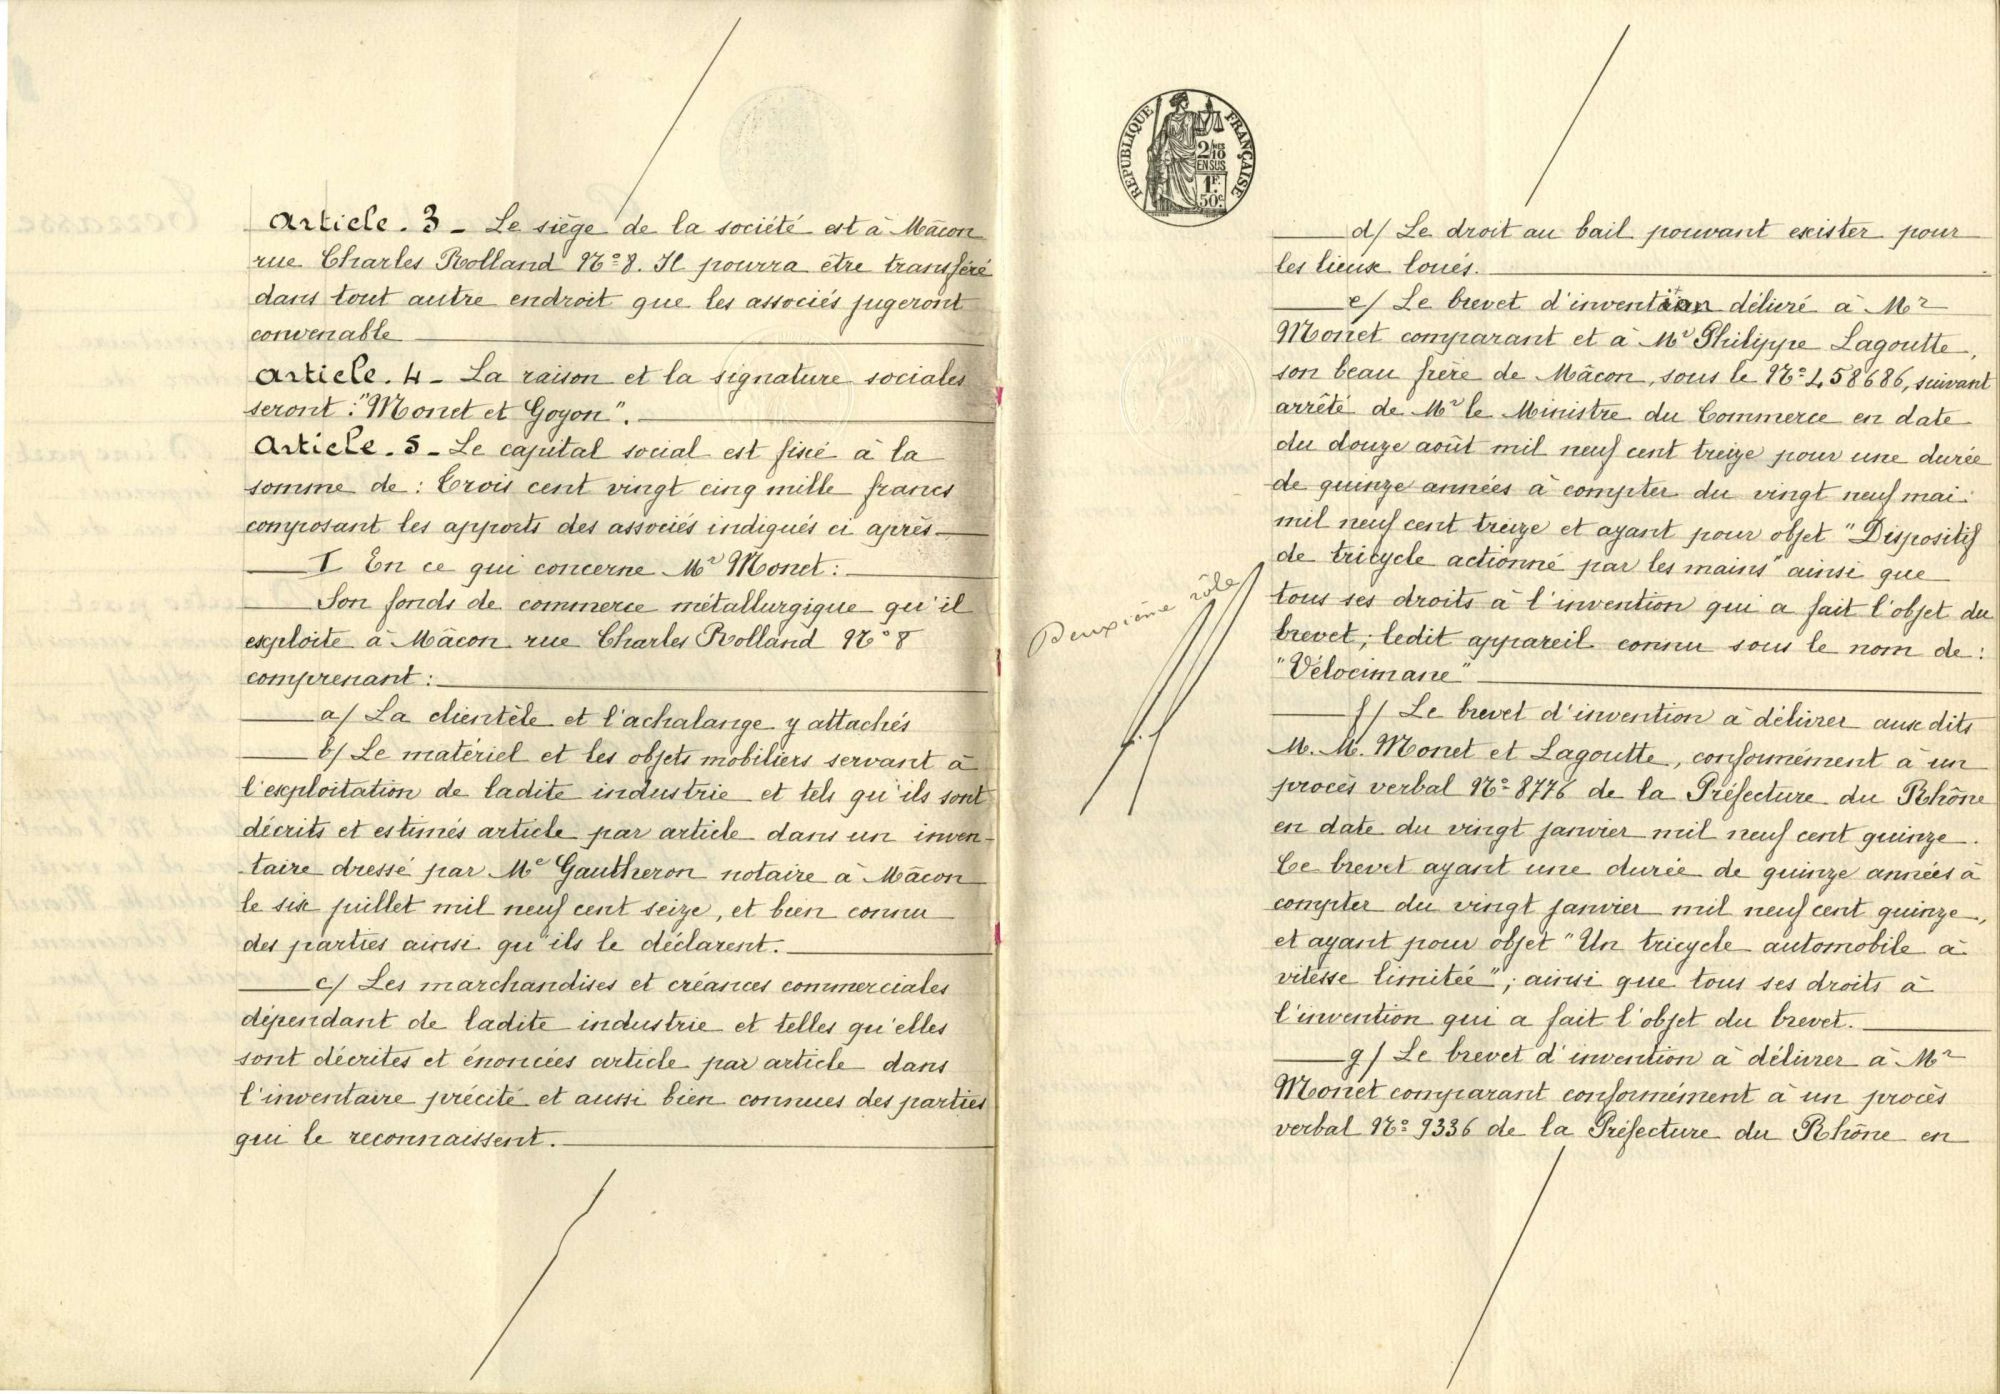 Article. 3 _ Le siège de la société est à Mâcon
rue Charles Rolland Nº 8. Il pourra être transféré
dans tout autre endroit que les associés jugeront
convenable
Article. 4 _ La raison et la signature sociales
seront : "Monet et Goyon".
Article. 5 _ Le capital social est fixé à la
somme de : Trois cent vingt cinq mille francs
composant les apports des associés indiqués ci après
I En ce qui concerne Mr Monet :
Son fonds de commerce métallurgique qu'il
exploite à Mâcon rue Charles Rolland Nº 8
comprenant :
a/ La clientèle et l'achalange y attachés
b/ Le matériel et les objets mobiliers servant à
l'exploitation de ladite industrie et tels qu'ils sont
décrits et estimés article par article dans un inven-
taire dressé par Me Gautheron notaire à Mâcon
le six juillet mil neuf cent seize, et bien connu
des parties ainsi qu'ils le déclarent.
c/ Les marchandises et créances commerciales
dépendant de ladite industrie et telles qu'elles
sont décrites et énoncées article par article dans
l'inventaire précité et aussi bien connues des parties
qui le reconnaissent.
RÉPUBLIQUE FRANÇAISE
2/10 EN SUS
1F. 50c.
d/ Le droit au bail pouvant exister pour
les lieux loués.
e/ Le brevet d'invention délivré à Mr
Monet comparant et à Mr Philippe Lagoutte,
son beau frère de Mâcon, sous le Nº 458686, suivant
arrêté de Mr le Ministre du Commerce en date
du douze août mil neuf cent treize pour une durée
de quinze années à compter du vingt neuf mai
mil neuf cent treize et ayant pour objet "Dispositif
de tricycle actionné par les mains" ainsi que
tous ses droits à l'invention qui a fait l'objet du
brevet ; ledit appareil connu sous le nom de :
"Vélocimane"
Deuxième rôle
f/ Le brevet d'invention à délivrer aux dits
M. M. Monet et Lagoutte, conformément à un
procès verbal Nº 8776 de la Préfecture du Rhône
en date du vingt janvier mil neuf cent quinze.
Ce brevet ayant une durée de quinze années à
compter du vingt janvier mil neuf cent quinze,
et ayant pour objet "Un tricycle automobile à
vitesse limitée" ; ainsi que tous ses droits à
l'invention qui a fait l'objet du brevet.
g/ Le brevet d'invention à délivrer à Mr
Monet comparant conformément à un procès
verbal Nº 9336 de la Préfecture du Rhône en